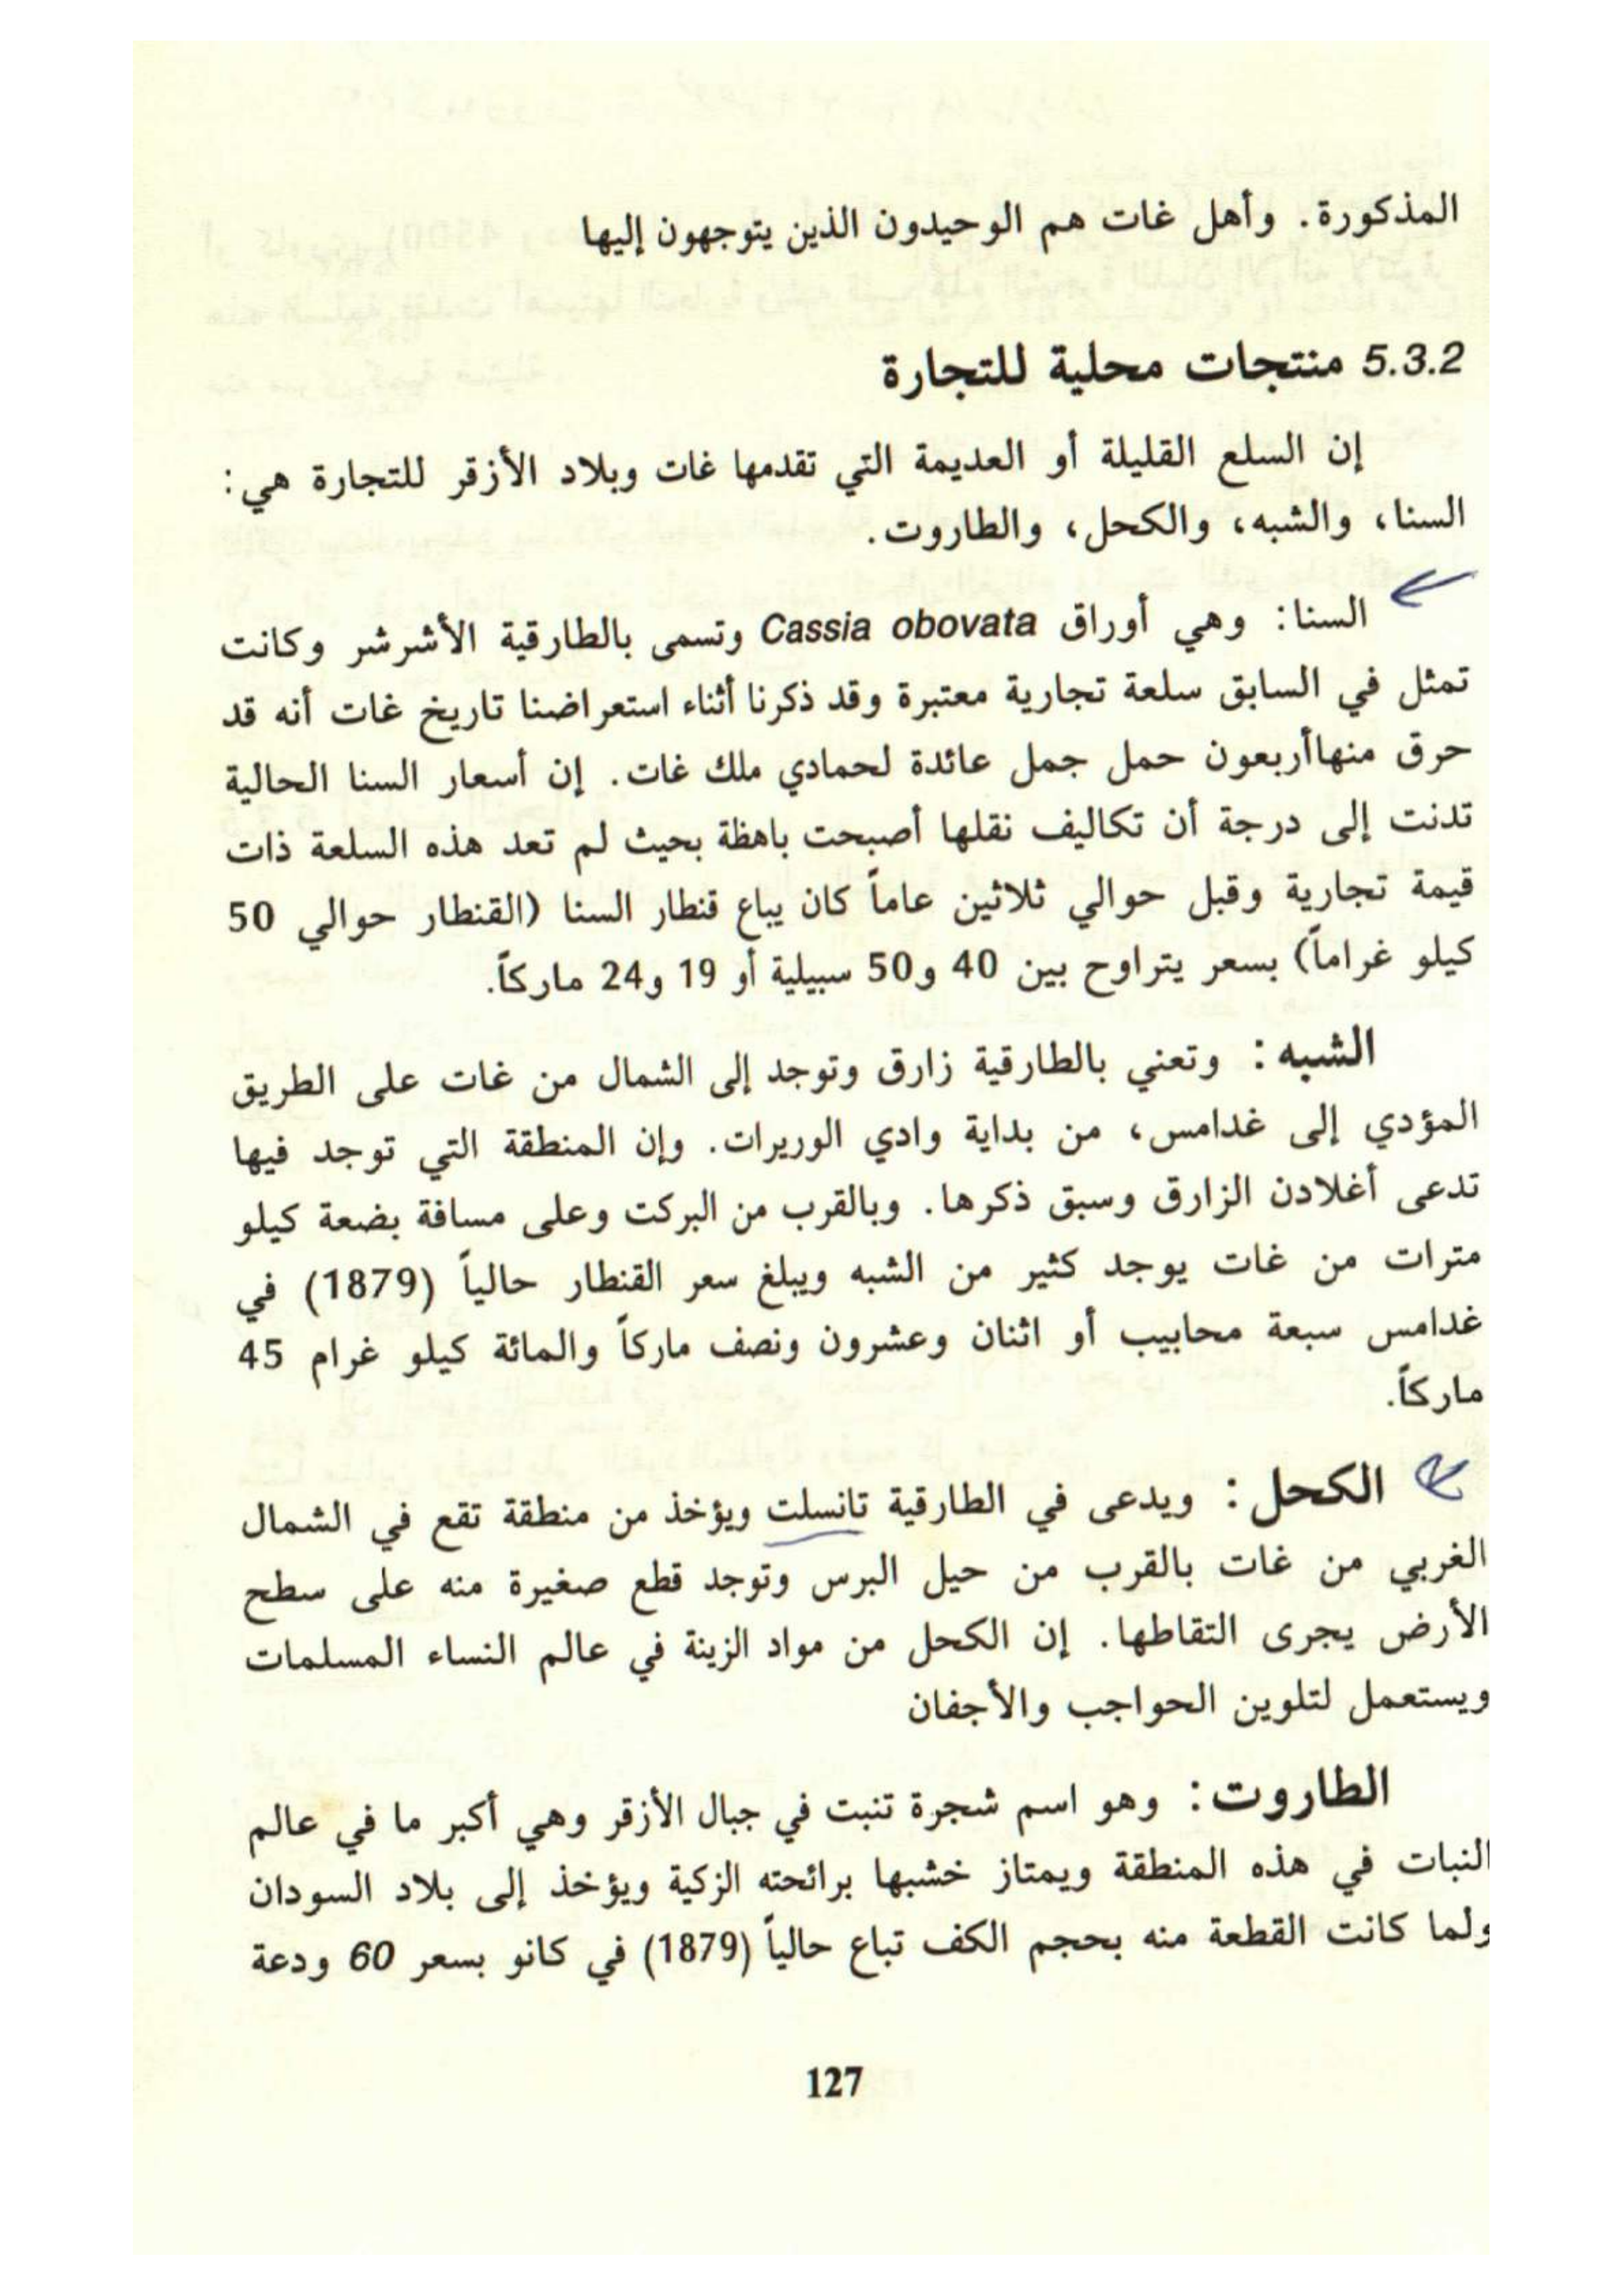 المذكورة. وأهل غات هم الوحيدون الذين يتوجهون إليها
5.3.2 منتجات محلية للتجارة
إن السلع القليلة أو العديمة التي تقدمها غات وبلاد الأزقر للتجارة هي:
السنا، والشبه، والكحل، والطاروت.
السنا: وهي أوراق Cassia obovata وتسمى بالطارقية الأشرشر وكانت
تمثل في السابق سلعة تجارية معتبرة وقد ذكرنا أثناء استعراضنا تاريخ غات أنه قد
حرق منهاأربعون حمل جمل عائدة لحمادي ملك غات. إن أسعار السنا الحالية
تدنت إلى درجة أن تكاليف نقلها أصبحت باهظة بحيث لم تعد هذه السلعة ذات
قيمة تجارية وقبل حوالي ثلاثين عاماً كان يباع قنطار السنا (القنطار حوالي 50
كيلو غراماً) بسعر يتراوح بين 40 و50 سبيلية أو 19 و24 ماركاً.
الشبه: وتعني بالطارقية زارق وتوجد إلى الشمال من غات على الطريق
المؤدي إلى غدامس، من بداية وادي الوريرات. وإن المنطقة التي توجد فيها
تدعى أغلادن الزارق وسبق ذكرها. وبالقرب من البركت وعلى مسافة بضعة كيلو
مترات من غات يوجد كثير من الشبه ويبلغ سعر القنطار حالياً (1879) في
غدامس سبعة محابيب أو اثنان وعشرون ونصف ماركاً والمائة كيلو غرام 45
ماركاً.
الكحل: ويدعى في الطارقية تانسلت ويؤخذ من منطقة تقع في الشمال
الغربي من غات بالقرب من حيل البرس وتوجد قطع صغيرة منه على سطح
الأرض يجرى التقاطها. إن الكحل من مواد الزينة في عالم النساء المسلمات
ويستعمل لتلوين الحواجب والأجفان
الطاروت: وهو اسم شجرة تنبت في جبال الأزقر وهي أكبر ما في عالم
النبات في هذه المنطقة ويمتاز خشبها برائحته الزكية ويؤخذ إلى بلاد السودان
ولما كانت القطعة منه بحجم الكف تباع حالياً (1879) في كانو بسعر 60 ودعة
127